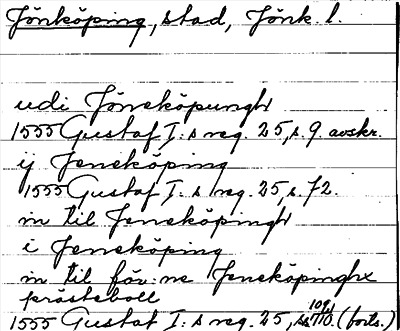 Jönköping, stad, Jönk. l.
udi Jöneköpungh
1555 Gustaf I:s reg. 25, s. 9. avskr.
ij Jeneköping
1555 Gustaf I:s reg. 25, s. 72.
in til Jeneköpingh
i Jeneköping
in til för:ne Jeneköpinghx
prästeboll
1555 Gustaf I:s reg. 25, ss 109, 110. (forts.)